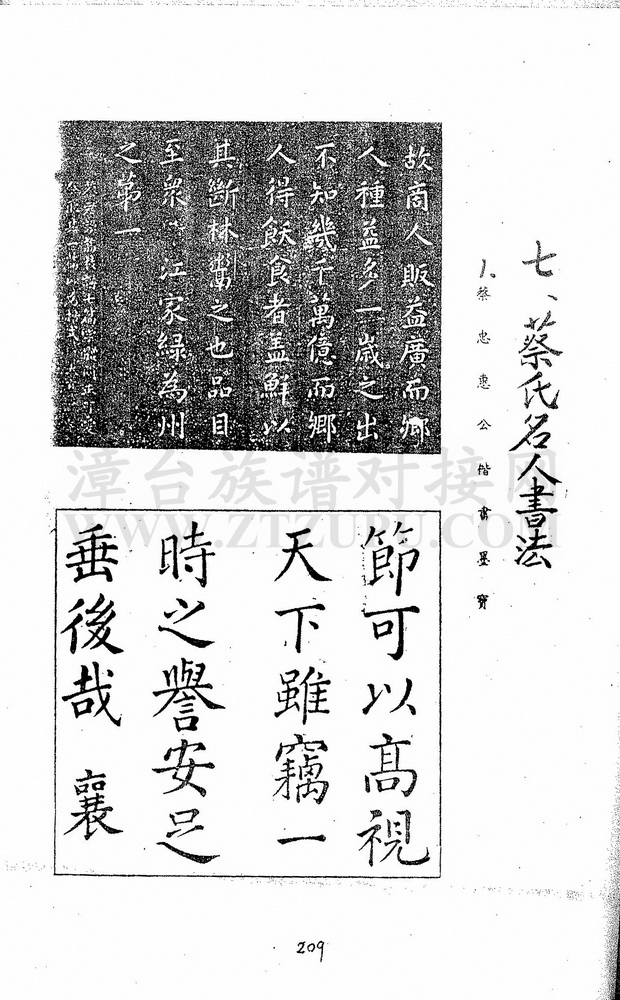 七、蔡氏名人書法
1、蔡忠惠公楷書墨寶
故商人販益廣而鄉
人種益多一歲之出
不知幾千萬億而鄉
人得飫食者盖鮮以
其斷林鬻之也品目
至衆 江家緑為州
之第一
節可以髙視
天下雖竊一
時之譽安足
垂後哉 襄
漳台族谱对接网
WWW.ZTZUPU.COM
209